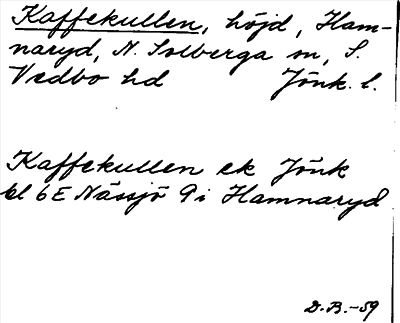 Kaffekullen, höjd, Ham-
naryd, N. Solberga sn, S.
Vedbo hd Jönk. l.
Kaffekullen ek Jönk
bl 6E Nässjö 9i Hamnaryd
D.B.-59